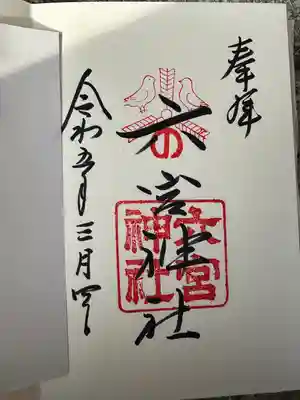 奉拝
六
の
宮神社
六宮
神社
令和五年三月四日